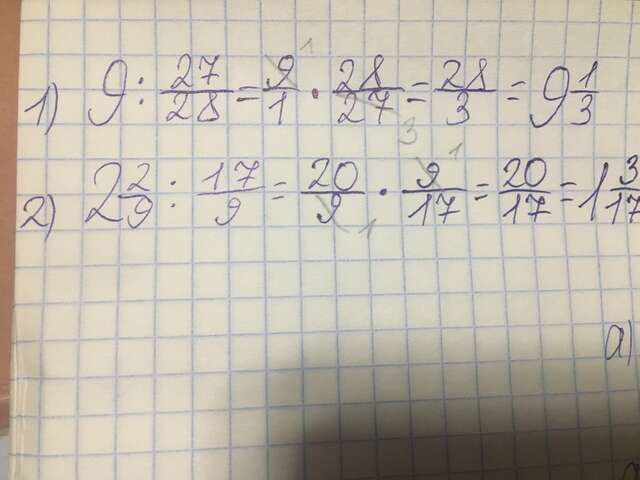 1) 9 : 27/28 = 9/1 · 28/27 = 28/3 = 9 1/3
2) 2 2/9 : 17/9 = 20/9 · 9/17 = 20/17 = 1 3/17
a)